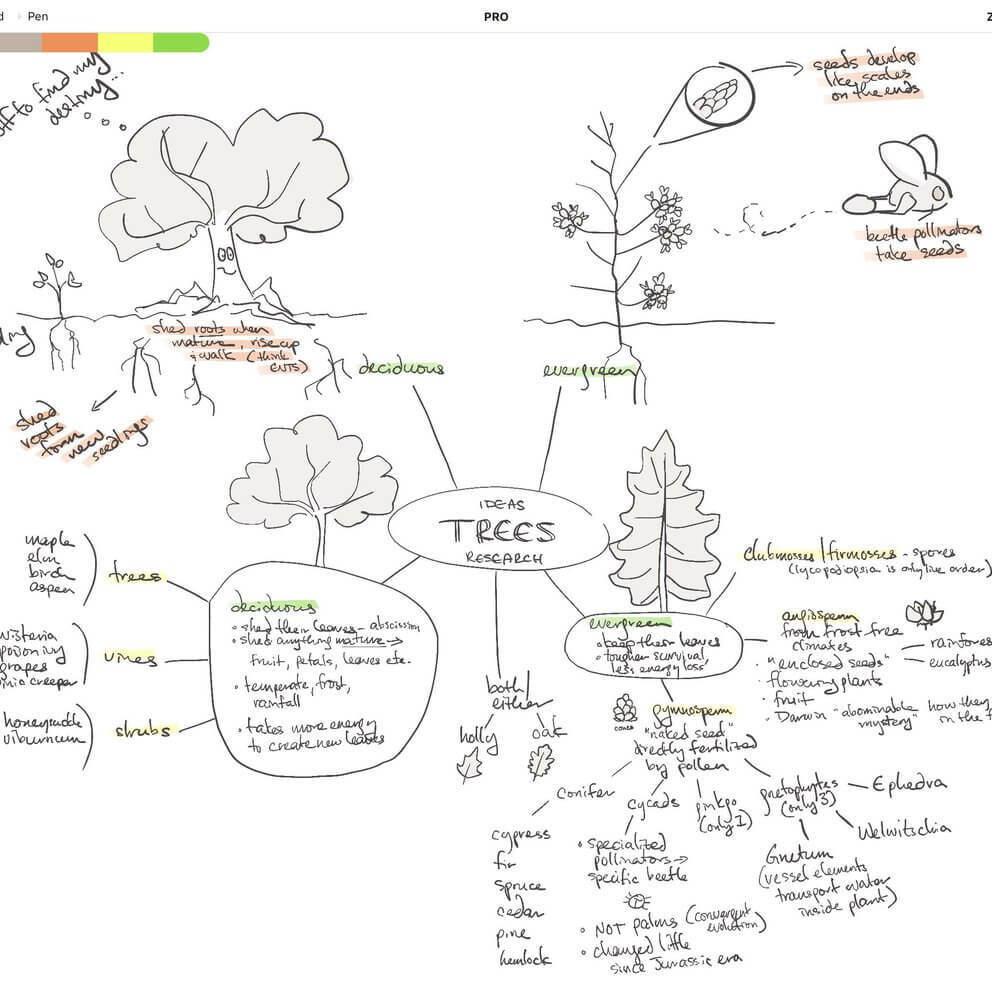 Pen
PRO
off to find my
destiny...
seeds develop
like scales
on the ends
beetle pollinators
take seeds
shed roots when
mature, rise up
& walk (think
ENTS)
shed
roots
form
new
seedlings
deciduous
evergreen
IDEAS
TREES
RESEARCH
maple
elm
birch
aspen
trees
wisteria
poison ivy
grapes
creeper
vines
honeysuckle
viburnum
shrubs
deciduous
• shed their leaves - abscission
• shed anything mature →
fruit, petals, leaves etc.
• temperate, frost,
rainfall
• takes more energy
to create new leaves
both/
either
holly
oak
evergreen
• keep their leaves
• tougher survival,
less energy loss
clubmosses/firmosses - spores
(lycopodiopsia is only live order)
angiosperm
from frost free
climates
rainfores
eucalyptus
• "enclosed seeds"
• flowering plants
• fruit
• Darwin "abominable
mystery"
how they
on the f
cones
gymnosperm
"naked seed"
directly fertilized
by pollen
conifer
cypress
fir
spruce
cedar
pine
hemlock
cycads
• specialized
pollinators →
specific beetle
• NOT palms (convergent
evolution)
• changed little
since Jurassic era
ginkgo
(only 1)
gnetophytes
(only 3)
Ephedra
Welwitschia
Gnetum
(vessel elements
transport water
inside plant)